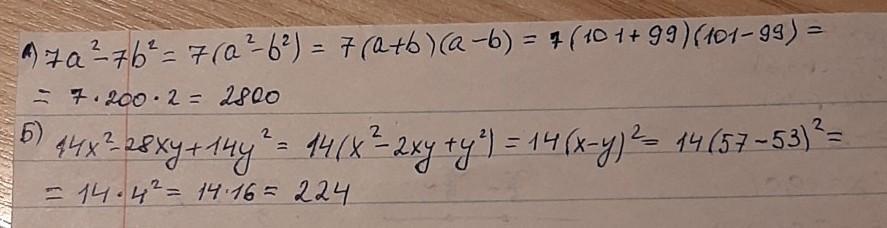 А) 7a² - 7b² = 7(a² - b²) = 7(a+b)(a-b) = 7(101+99)(101-99) =
= 7·200·2 = 2800
Б) 14x² - 28xy + 14y² = 14(x² - 2xy + y²) = 14(x-y)² = 14(57-53)² =
= 14·4² = 14·16 = 224